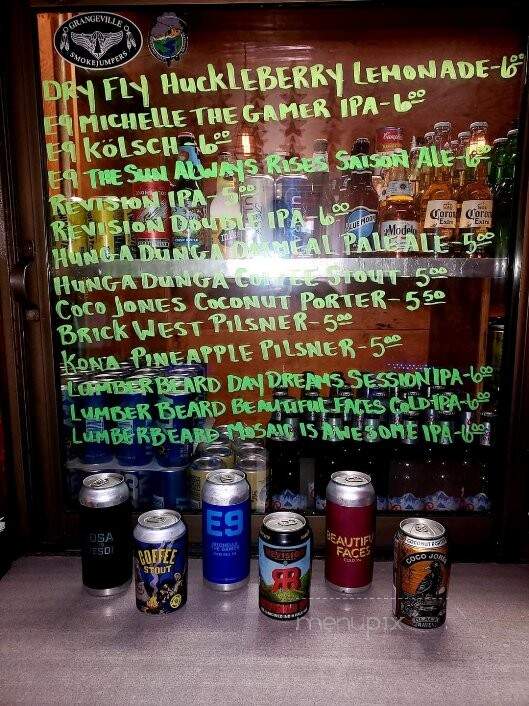 GRANGEVILLE
SMOKEJUMPERS
DRY FLY HUCKLEBERRY LEMONADE-6⁰⁰
E9 MICHELLE THE GAMER IPA-6⁰⁰
E9 KÖLSCH-6⁰⁰
E9 THE SUN ALWAYS RISES SAISON ALE-6⁰⁰
REVISION IPA-5⁰⁰
REVISION DOUBLE IPA-6⁰⁰
HUNGA DUNGA OATMEAL PALE ALE-5⁰⁰
HUNGA DUNGA COFFEE STOUT-5⁰⁰
COCO JONES COCONUT PORTER-5⁵⁰
BRICK WEST PILSNER-5⁰⁰
KONA PINEAPPLE PILSNER-5⁰⁰
LUMBERBEARD DAY DREAMS SESSION IPA-6⁰⁰
LUMBERBEARD BEAUTIFUL FACES COLD IPA-6⁰⁰
LUMBERBEARD MOSAIC IS AWESOME IPA-6⁰⁰
BLUE MOON
Modelo
Corona
Extra
Corona
Extra
COFFEE
STOUT
E9
MICHELLE
THE GAMER
REVISION
BEAUTIFUL
FACES
COLD IPA
COCONUT PORTER
COCO JONES
menupix